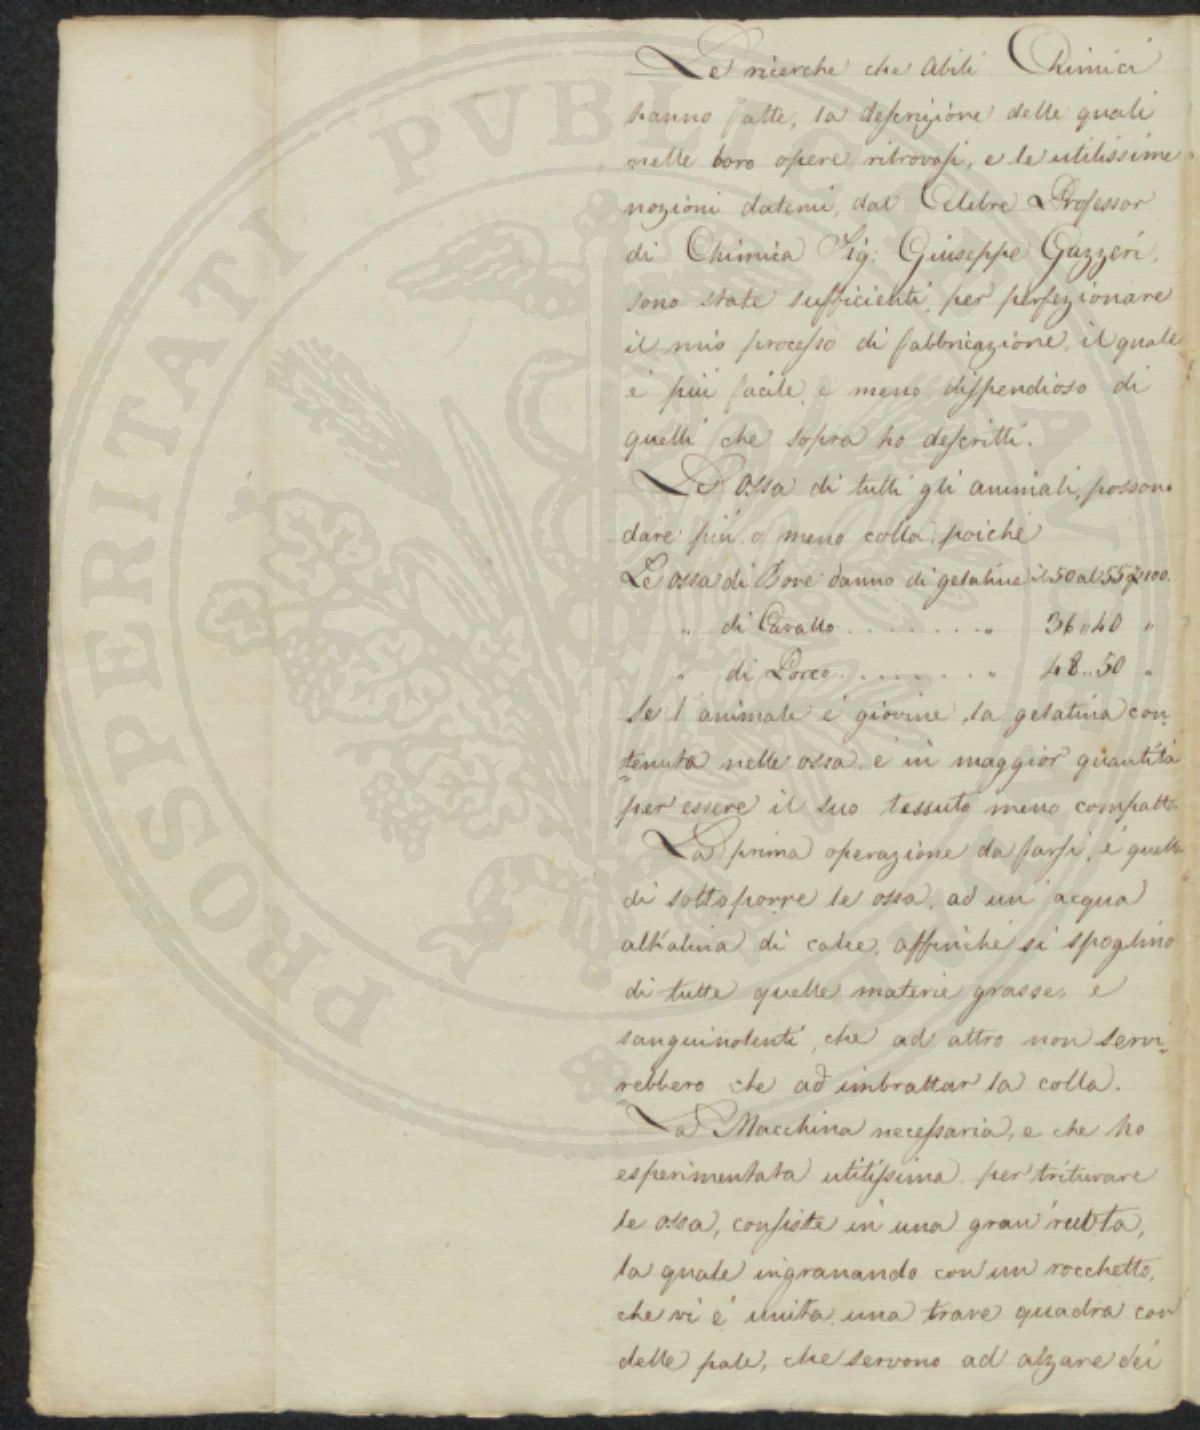 Le ricerche che abili Chimici
hanno fatte, la descrizione delle quali
nelle loro opere ritrovasi, e le utilissime
nozioni datemi, dal Celebre Professor
di Chimica Sig: Giuseppe Gazzeri,
sono state sufficienti, per perfezionare
il mio processo di fabbricazione, il quale
é più facile, e meno dispendioso di
quelli che sopra ho descritti.
Le Ossa di tutti gli animali, possono
dare più, o meno colla, poiché
Le ossa di Bove danno di gelatina il 50 al 55 p 100.
" di Cavallo . . . . . . . . " 36 " 40 "
" di Porco . . . . . . . . " 48 " 50 "
Se l'animale é giovine, la gelatina con-
tenuta nelle ossa, é in maggior quantità
per essere il suo tessuto meno compatto.
La prima operazione da farsi, é quella
di sottoporre le ossa, ad un acqua
alkalina di calce, affinché si spoglino
di tutte quelle materie grasse, e
sanguinolenti, che ad altro non servi-
rebbero che ad imbrattar la colla.
La Macchina necessaria, e che ho
esperimentata utilissima, per triturare
le ossa, consiste in una gran' ruota,
la quale ingranando con un rocchetto,
che vi é unita una trave quadra con
delle pale, che servono ad alzare dei
PROSPERITATI PVBLICAE